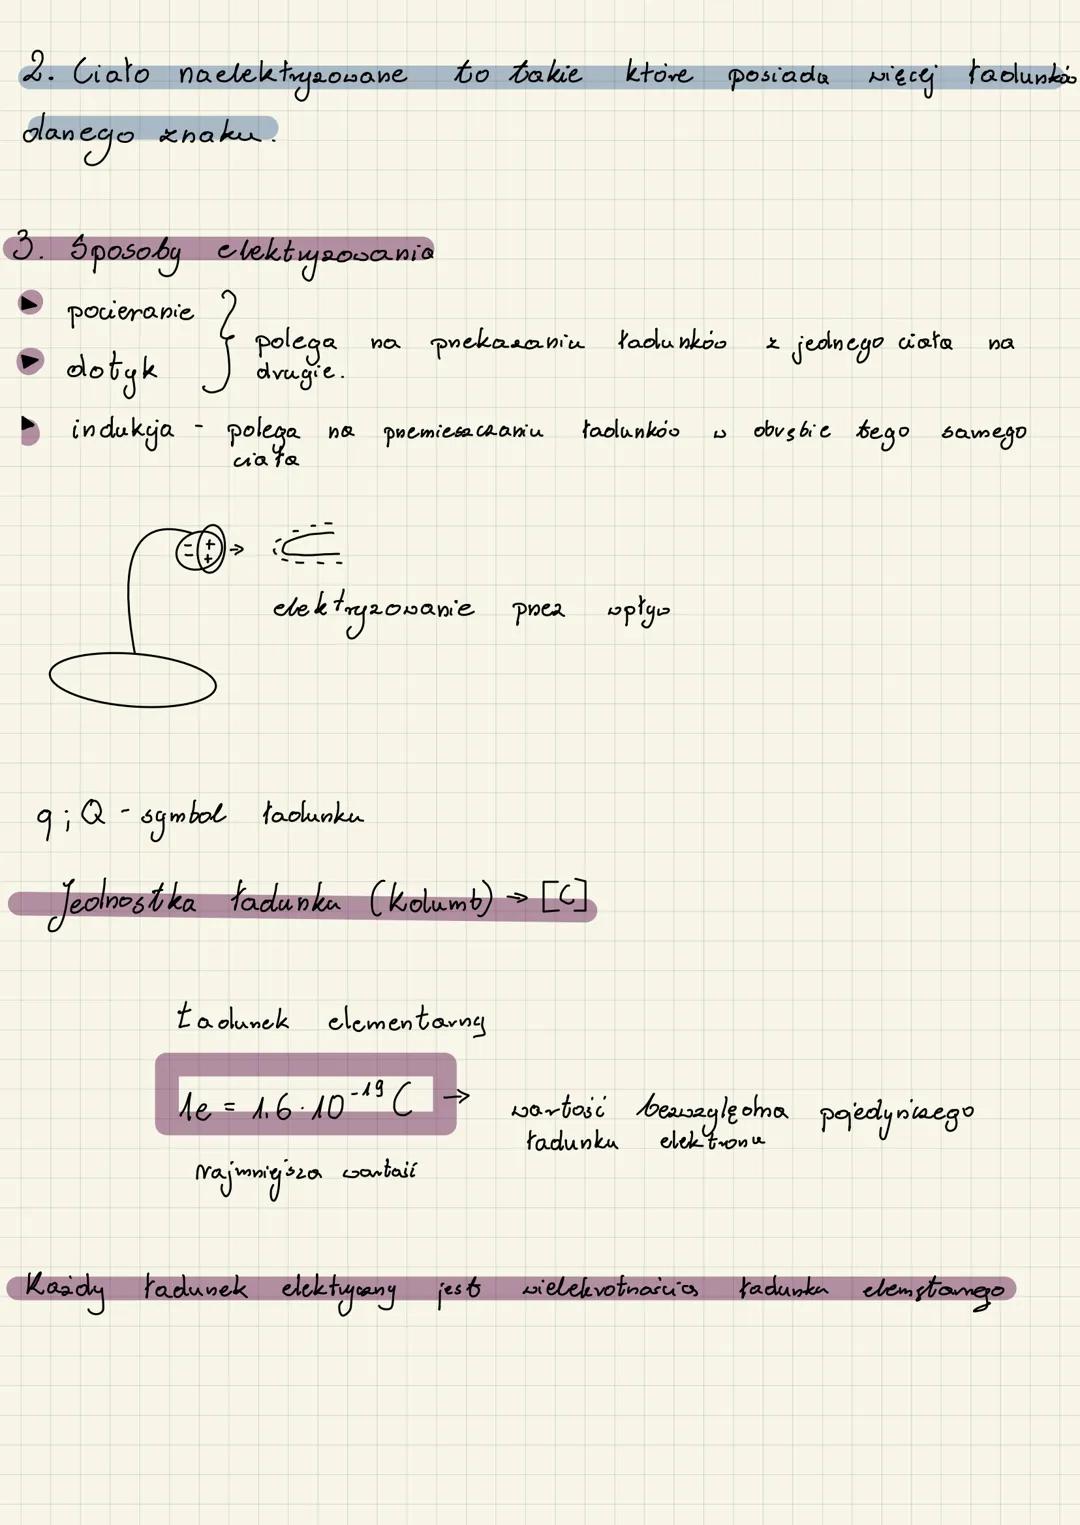 2. Ciało naelektryzowane to takie które posiada więcej ładunków
danego znaku.
3. Sposoby elektryzowania
pocieranie
dotyk
polega na przekazaniu ładunków z jednego ciała na
drugie.
indukcja - polega na przemieszczaniu ładunków w obrębie tego samego
ciała
elektryzowanie przez wpływ
q; Q - symbol ładunku
Jednostka ładunku (kolumb) → [C]
Ładunek elementarny
1e = 1.6 · 10⁻¹⁹ C →
wartość bezwzględna pojedynczego
ładunku elektronu
Najmniejsza wartość
Każdy ładunek elektryczny jest wielokrotnością ładunku